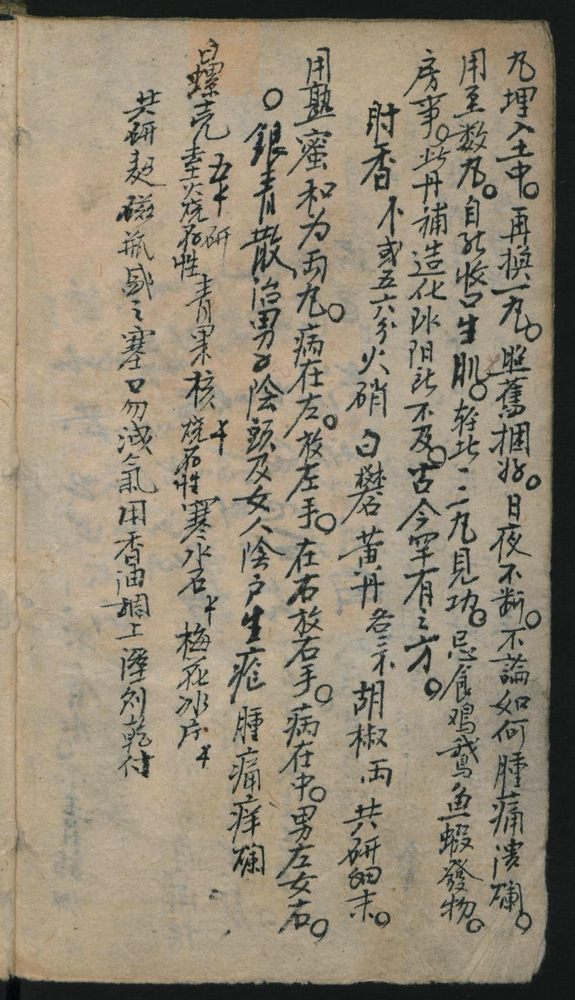 丸埋入土中。再換一丸。照舊捆好。日夜不断。不論如何腫痛潰爛。
用至数丸。自能收口生肌。輕此一二丸見功。忌食鸡鵞魚蝦發物。
房事。此丹補造化陰陽所不及。古今罕有之方。
射香 不或五六分 火硝 白礬 黄丹 各三 胡椒 両 共研细末。
用熟蜜和为両丸。病在左。放左手。在右放右手。病在中。男左女右。
○銀青散 治男子陰頭及女人陰户生疮 腫痛痒爛
螺壳 火烧存性 研 青果核 烧存性 寒水石 梅花冰片
共研 磁瓶盛之塞口勿洩氣用香油調上湿则乾付